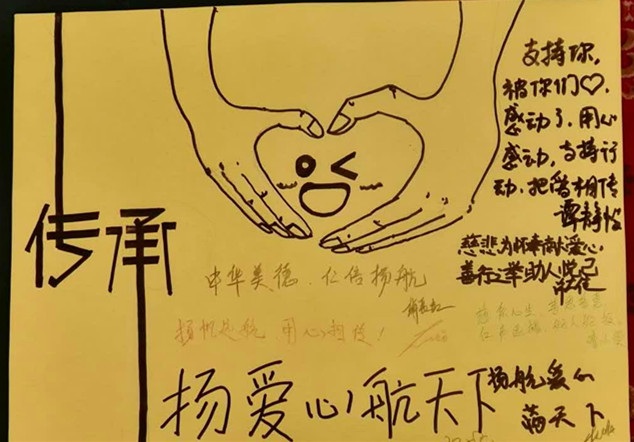 支持你,
被你们♡.
感动了.用心
感动,支持行
动.把善相传
谭静怡
传承
慈悲为怀奉献爱心
善行之举助人悦己
中华美德.仁信扬航
扬帆起航 用心相传!
扬爱心航天下
扬航爱心
满天下